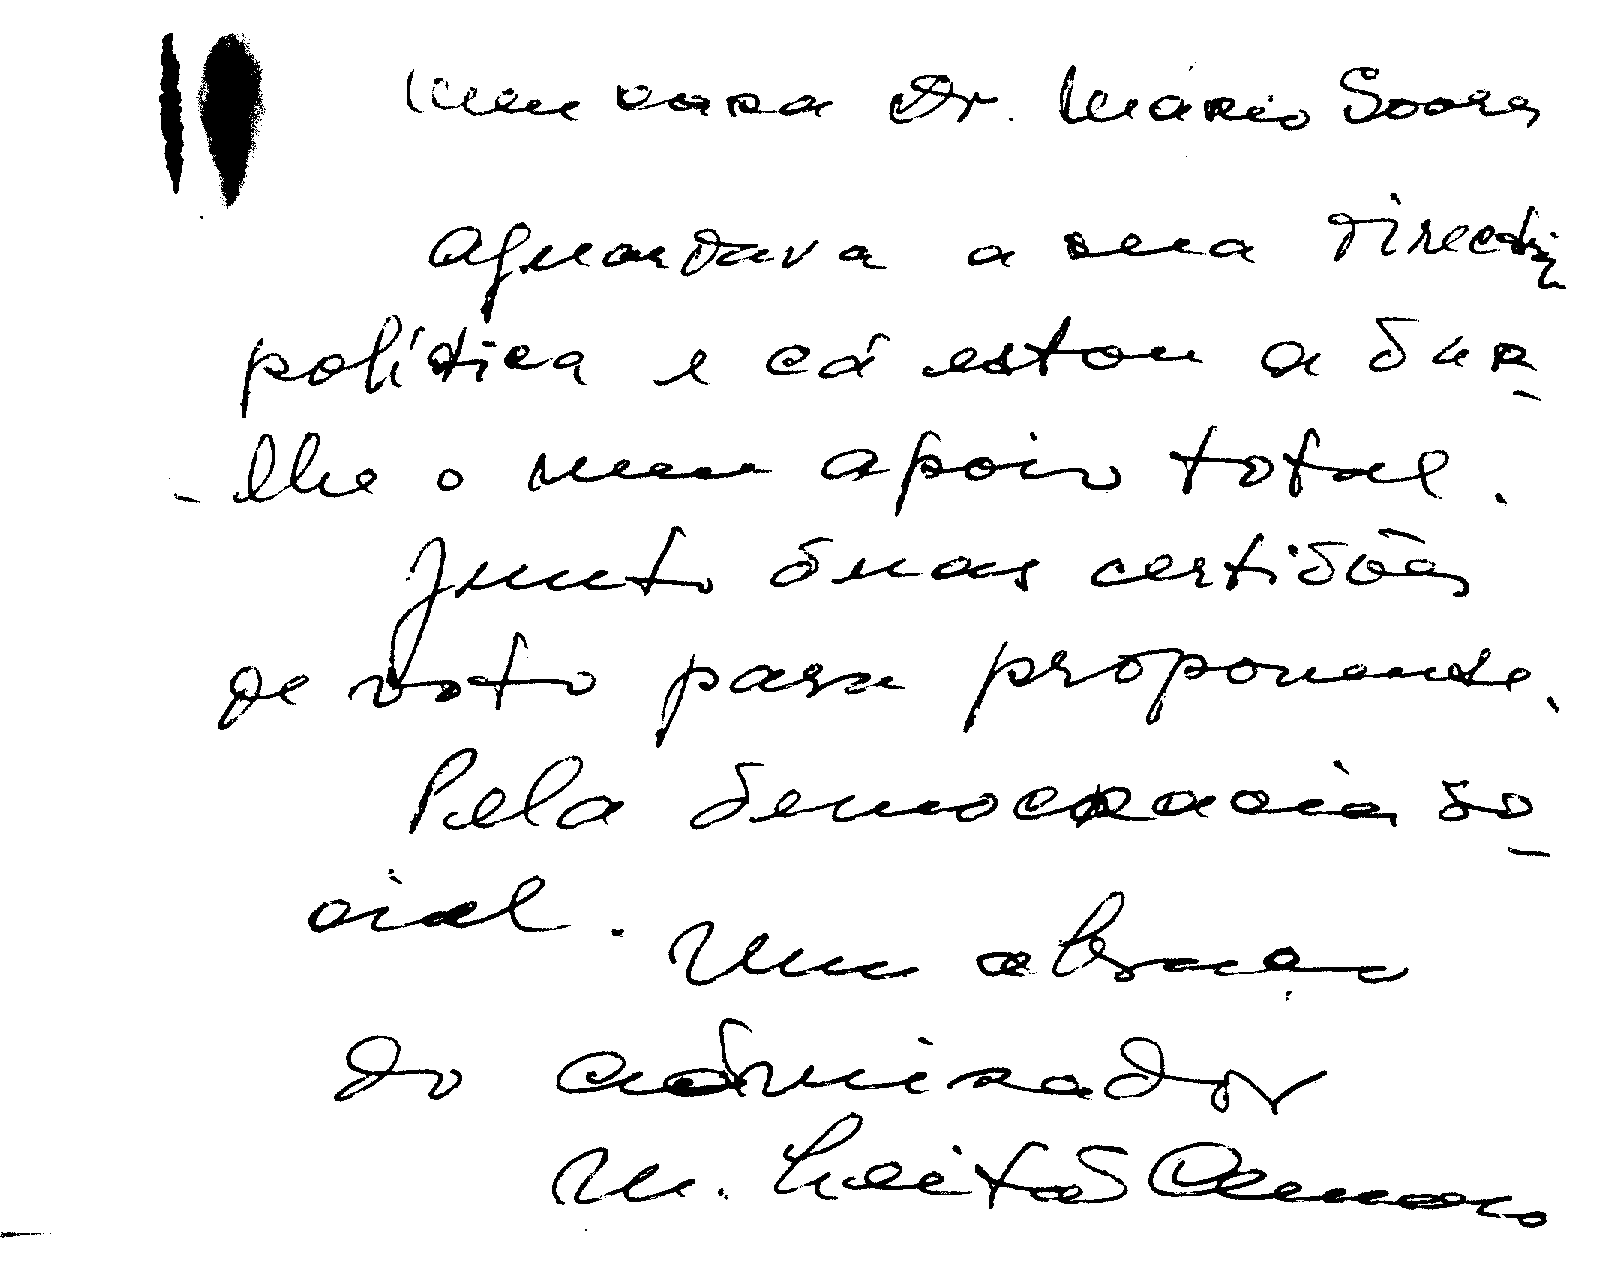 Meu caro Dr. Mário Soares
Aguardava a sua directriz
política e cá estou a dar-
-lhe o meu apoio total.
Junto duas certidões
de voto para proponente.
Pela democracia so-
cial. Um abraço
do admirador
M. Leitão